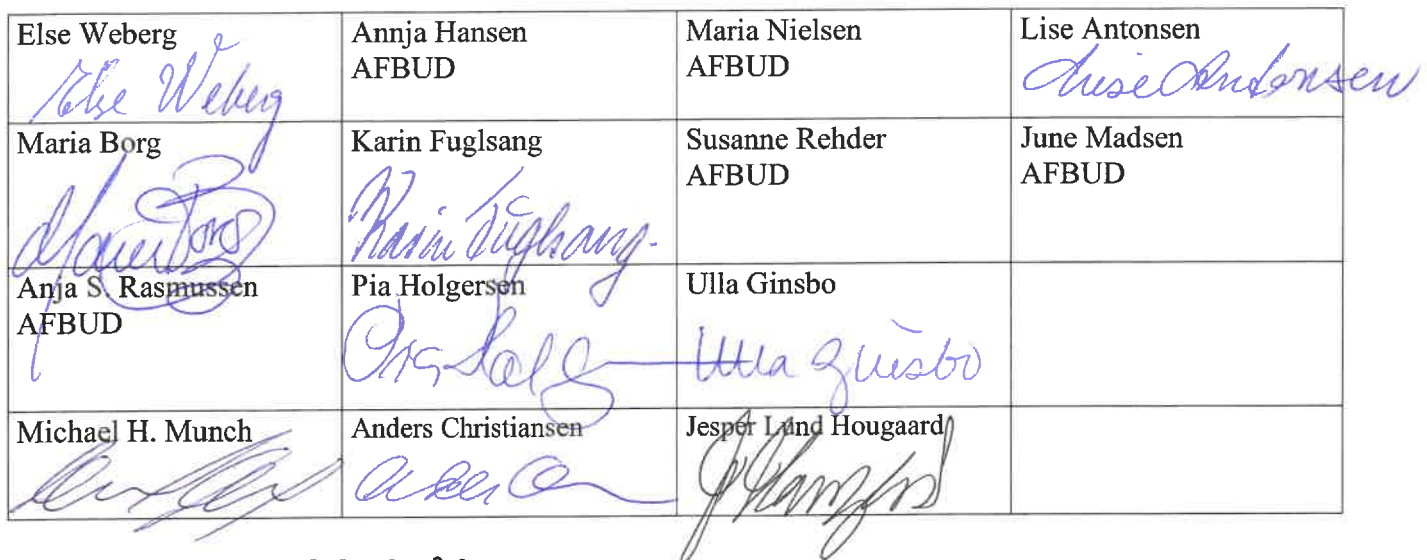 Else Weberg
Else Weberg
Annja Hansen
AFBUD
Maria Nielsen
AFBUD
Lise Antonsen
Lise Antonsen
Maria Borg
Maria Borg
Karin Fuglsang
Karin Fuglsang
Susanne Rehder
AFBUD
June Madsen
AFBUD
Anja S. Rasmussen
AFBUD
Pia Holgersen
Pia Holg
Ulla Ginsbo
Ulla Ginsbo
Michael H. Munch
Anders Christiansen
Jesper Lund Hougaard